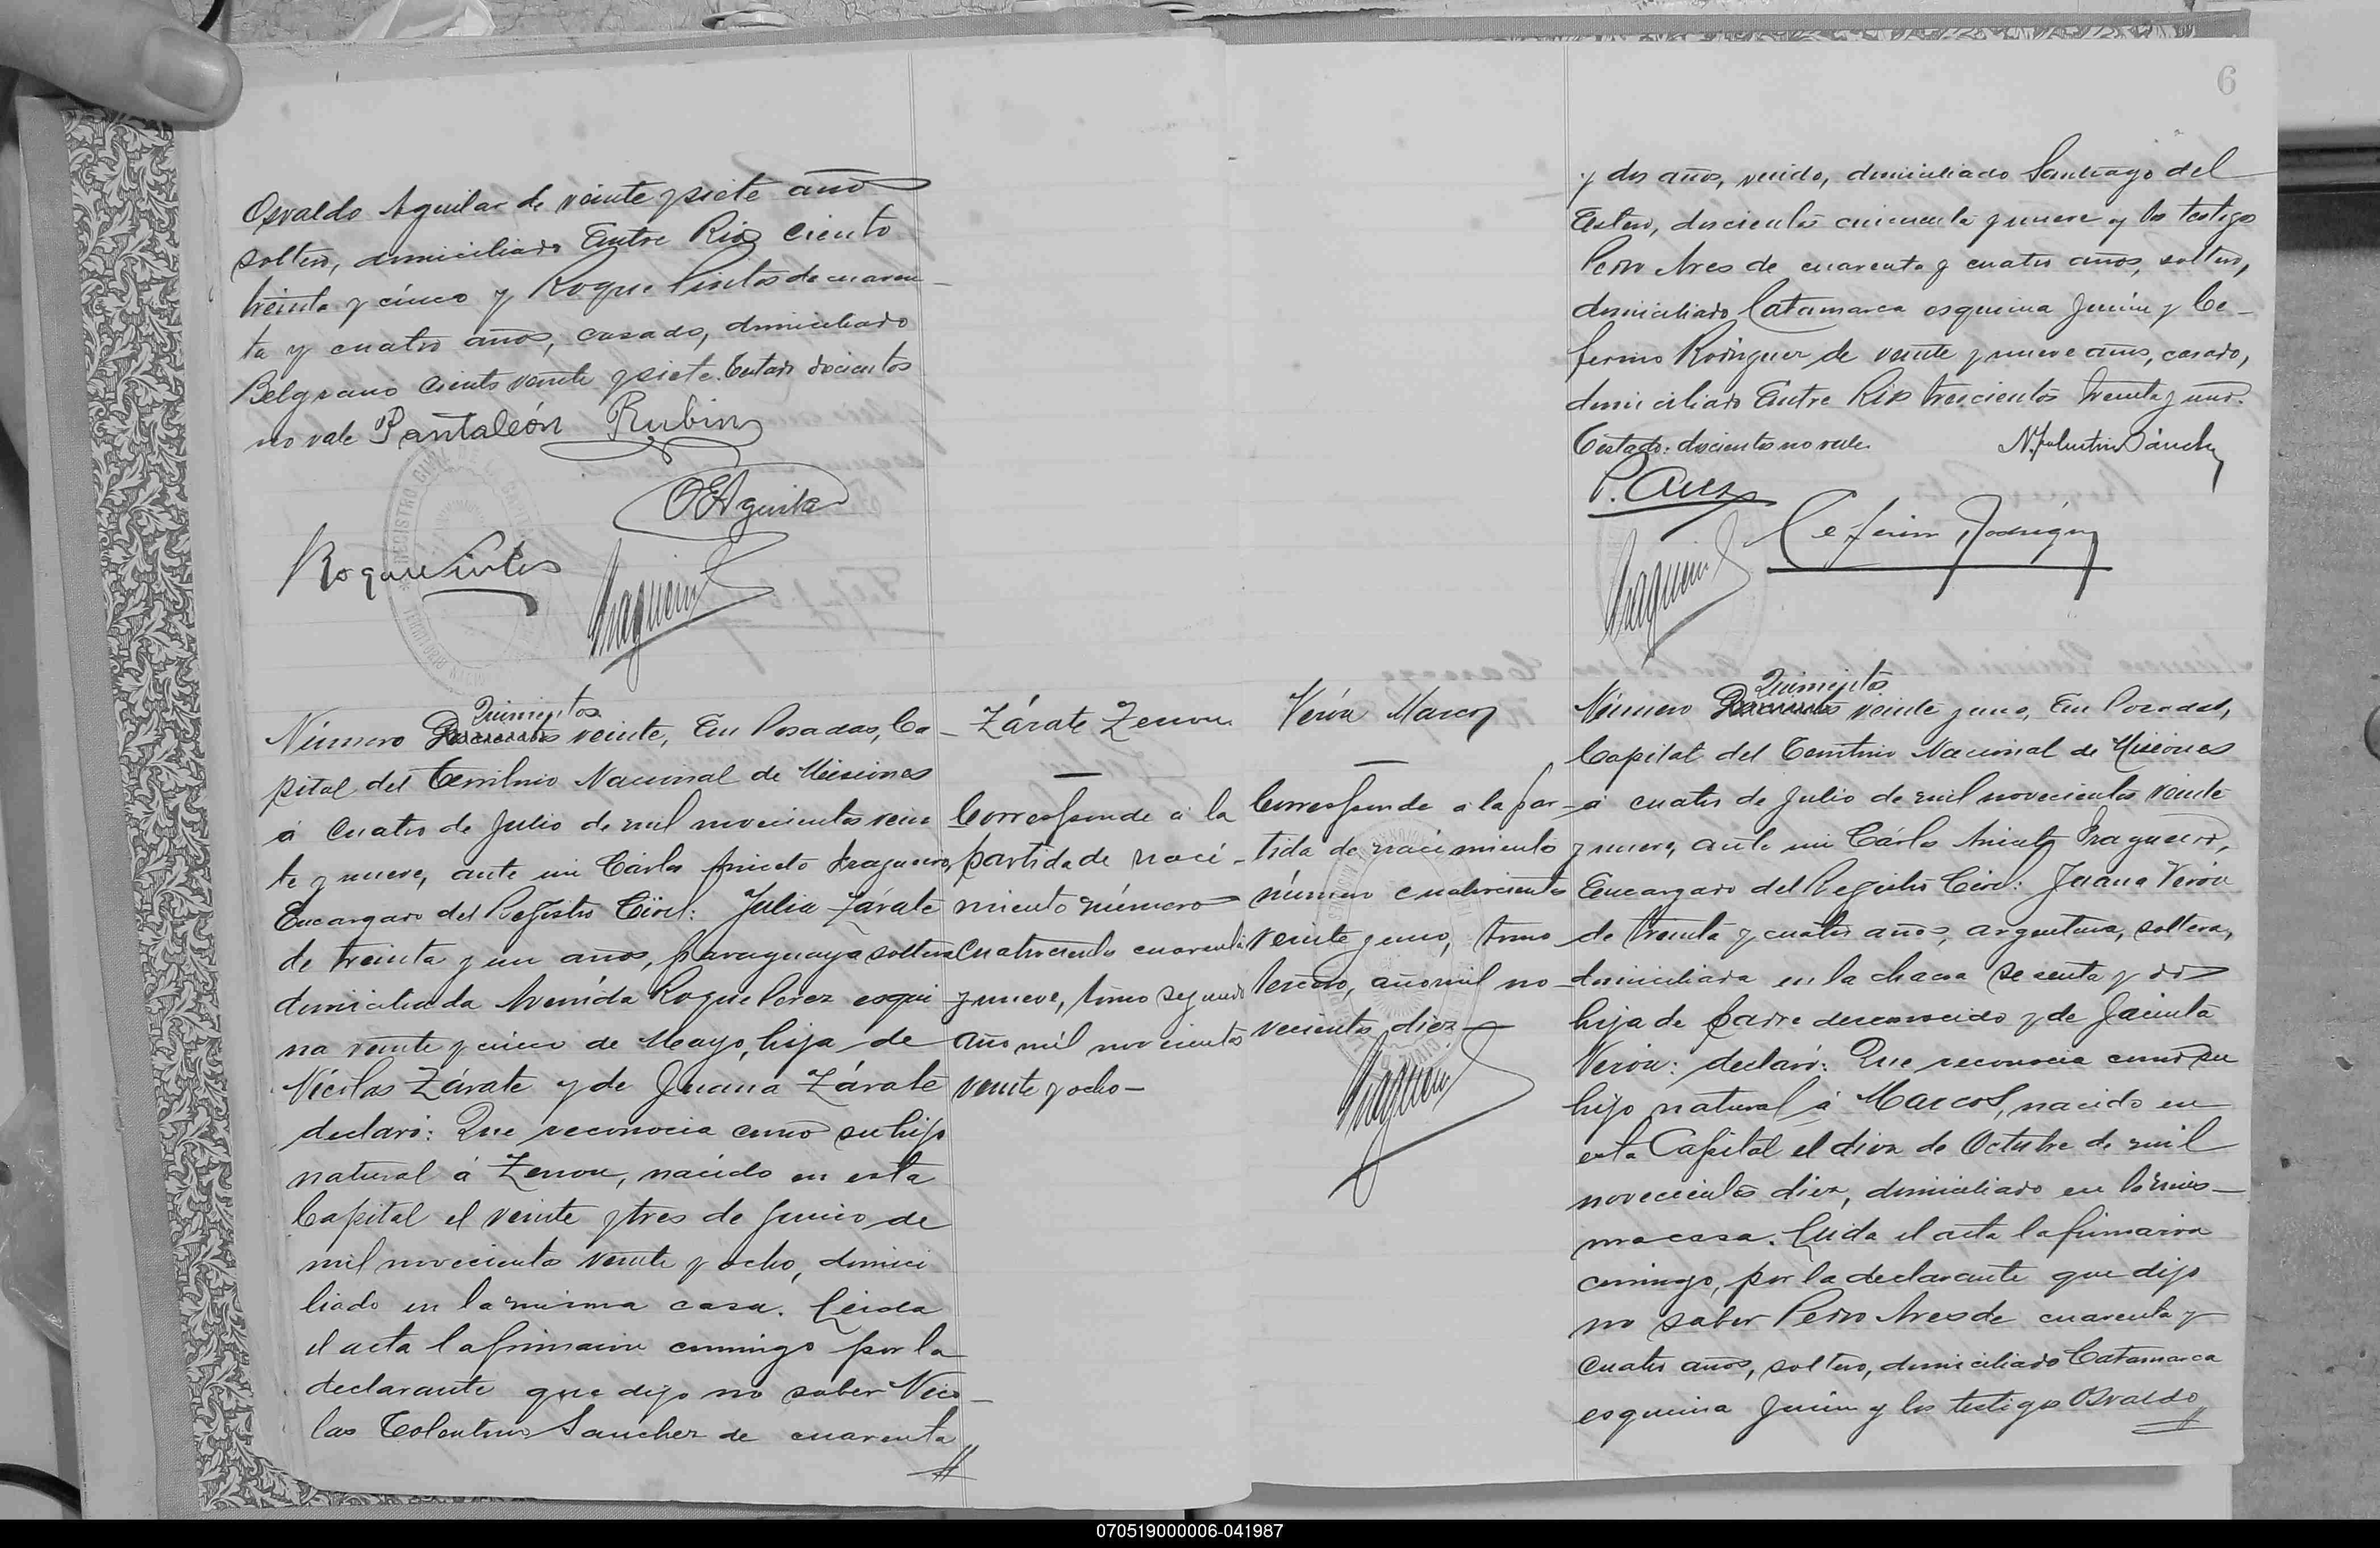 Osvaldo Aguilar de veinte y siete años
soltero, domiciliado Entre Rios ciento
treinta y cinco y Roque Pintos de cuaren-
ta y cuatro años, casado, domiciliado
Belgrano ciento veinte y siete. Testado docientos
no vale Pantaleón Rubin
OEAguilar
Roque Pintos
Número Docientos Quinientos veinte, En Posadas, Ca-
pital del Territorio Nacional de Misiones
á cuatro de Julio de mil novecientos vein
te y nueve, ante mi Cárlos Aniceto Fragueiro,
Encargado del Registro Civil: Julia Zárate
de treinta y un años, paraguaya soltera
domiciliada Avenida Roque Perez esqui
na veinte y cinco de Mayo, hija de
Nicolas Zárate y de Juana Zárate
declaró: Que reconocia como su hijo
natural á Zenon, nacido en esta
Capital el veinte y tres de Junio de
mil novecientos veinte y ocho, domici
liado en la misma casa. Leida
el acta la firmaron conmigo por la
declarante que dijo no saber Nico-
las Tolentino Sanchez de cuarenta
Zárate Zenon
Corresponde á la
partida de naci-
miento número
cuatrocientos cuarenta
y nueve, tomo segundo
año mil novecientos
veinte y ocho-
Verón Marcos
Corresponde a la par-
tida de nacimiento
número cuatrocientos
veinte y uno, tomo
tercero, año mil no-
vecientos diez-
6
y dos años, viudo, domiciliado Santiago del
Estero, doscientos cincuenta y nueve y los testigos
Pedro Ares de cuarenta y cuatro años, soltero,
domiciliado Catamarca esquina Junin y Ce-
ferino Rodriguez de veinte y nueve años, casado,
domiciliado Entre Rios trescientos treinta y uno.
Testado: docientos no vale. N. Tolentino Sánchez
P. Ares
Ceferino Rodriguez
Número Docientos Quinientos veinte y uno, En Posadas,
Capital del Territorio Nacional de Misiones
á cuatro de Julio de mil novecientos veinte
y nueve, ante mi Cárlos Aniceto Fragueiro,
Encargado del Registro Civil: Juana Verón
de treinta y cuatro años, argentina, soltera,
domiciliada en la chacra sesenta y dos
hija de padre desconocido y de Jacinta
Verón: declaró: Que reconocia como su
hijo natural á Marcos, nacido en
esta Capital el diez de Octubre de mil
novecientos diez, domiciliado en la mis-
ma casa. Leida el acta la firmaron
conmigo, por la declarante que dijo
no saber Pedro Ares de cuarenta y
cuatro años, soltero, domiciliado Catamarca
esquina Junin y los testigos Osvaldo
070519000006-041987